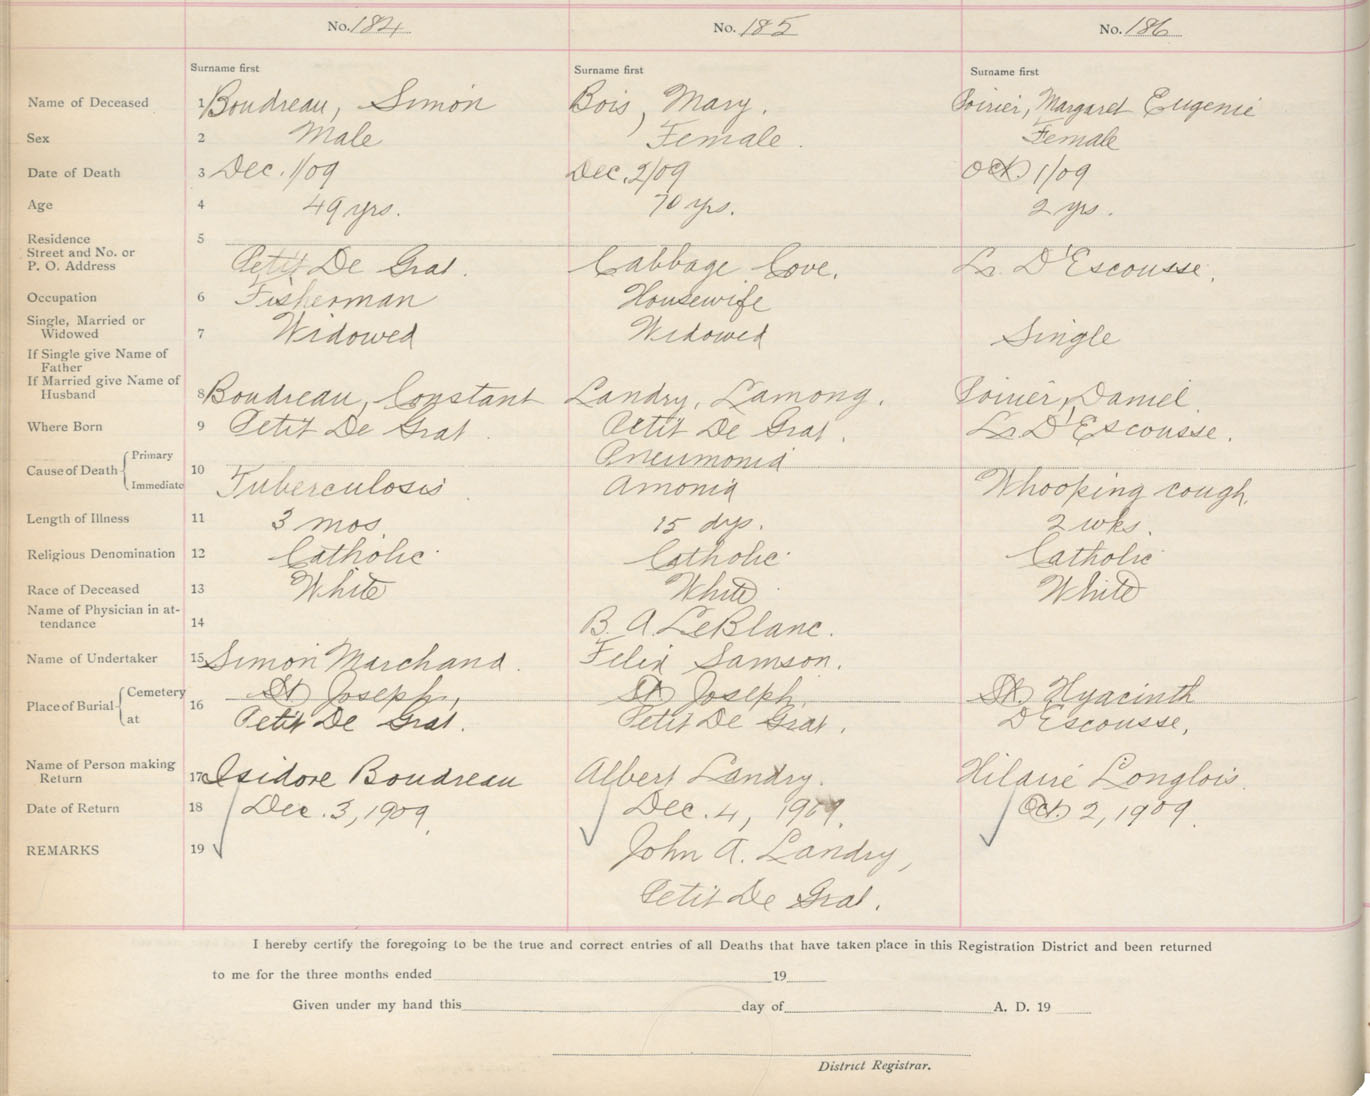 No. 184 No. 185 No. 186
Surname first Surname first Surname first
Name of Deceased 1 Boudreau, Simon Bois, Mary. Poirier, Margaret Eugenie
Sex 2 Male Female. Female
Date of Death 3 Dec. 1/09 Dec. 2/09 Oct 1/09
Age 4 49 yrs. 70 yrs. 2 yrs.
Residence 5
Street and No. or
P. O. Address Petit De Grat. Cabbage Cove. Lr. D'Escousse.
Occupation 6 Fisherman Housewife
Single, Married or
Widowed 7 Widowed Widowed Single
If Single give Name of
Father
If Married give Name of
Husband 8 Boudreau, Constant Landry, Lamong. Poirier, Daniel
Where Born 9 Petit De Grat. Petit De Grat. Lr. D'Escousse.
Cause of Death Primary 10 Pneumonia
Immediate Tuberculosis. Amonia Whooping cough.
Length of Illness 11 3 mos. 15 dys. 2 wks.
Religious Denomination 12 Catholic Catholic Catholic
Race of Deceased 13 White White White
Name of Physician in at-
tendance 14 B. A. LeBlanc.
Name of Undertaker 15 Simon Marchand. Felix Samson.
Place of Burial Cemetery 16 St Joseph, St Joseph, St. Hyacinth
at Petit De Grat. Petit De Grat. D'Escousse,
Name of Person making
Return 17 Isidore Boudreau Albert Landry. Hilaire Longlois
Date of Return 18 Dec. 3, 1909. Dec. 4, 1909. Oct. 2, 1909.
REMARKS 19 John A. Landry,
Petit De Grat.
I hereby certify the foregoing to be the true and correct entries of all Deaths that have taken place in this Registration District and been returned
to me for the three months ended 19
Given under my hand this day of A. D. 19
District Registrar.